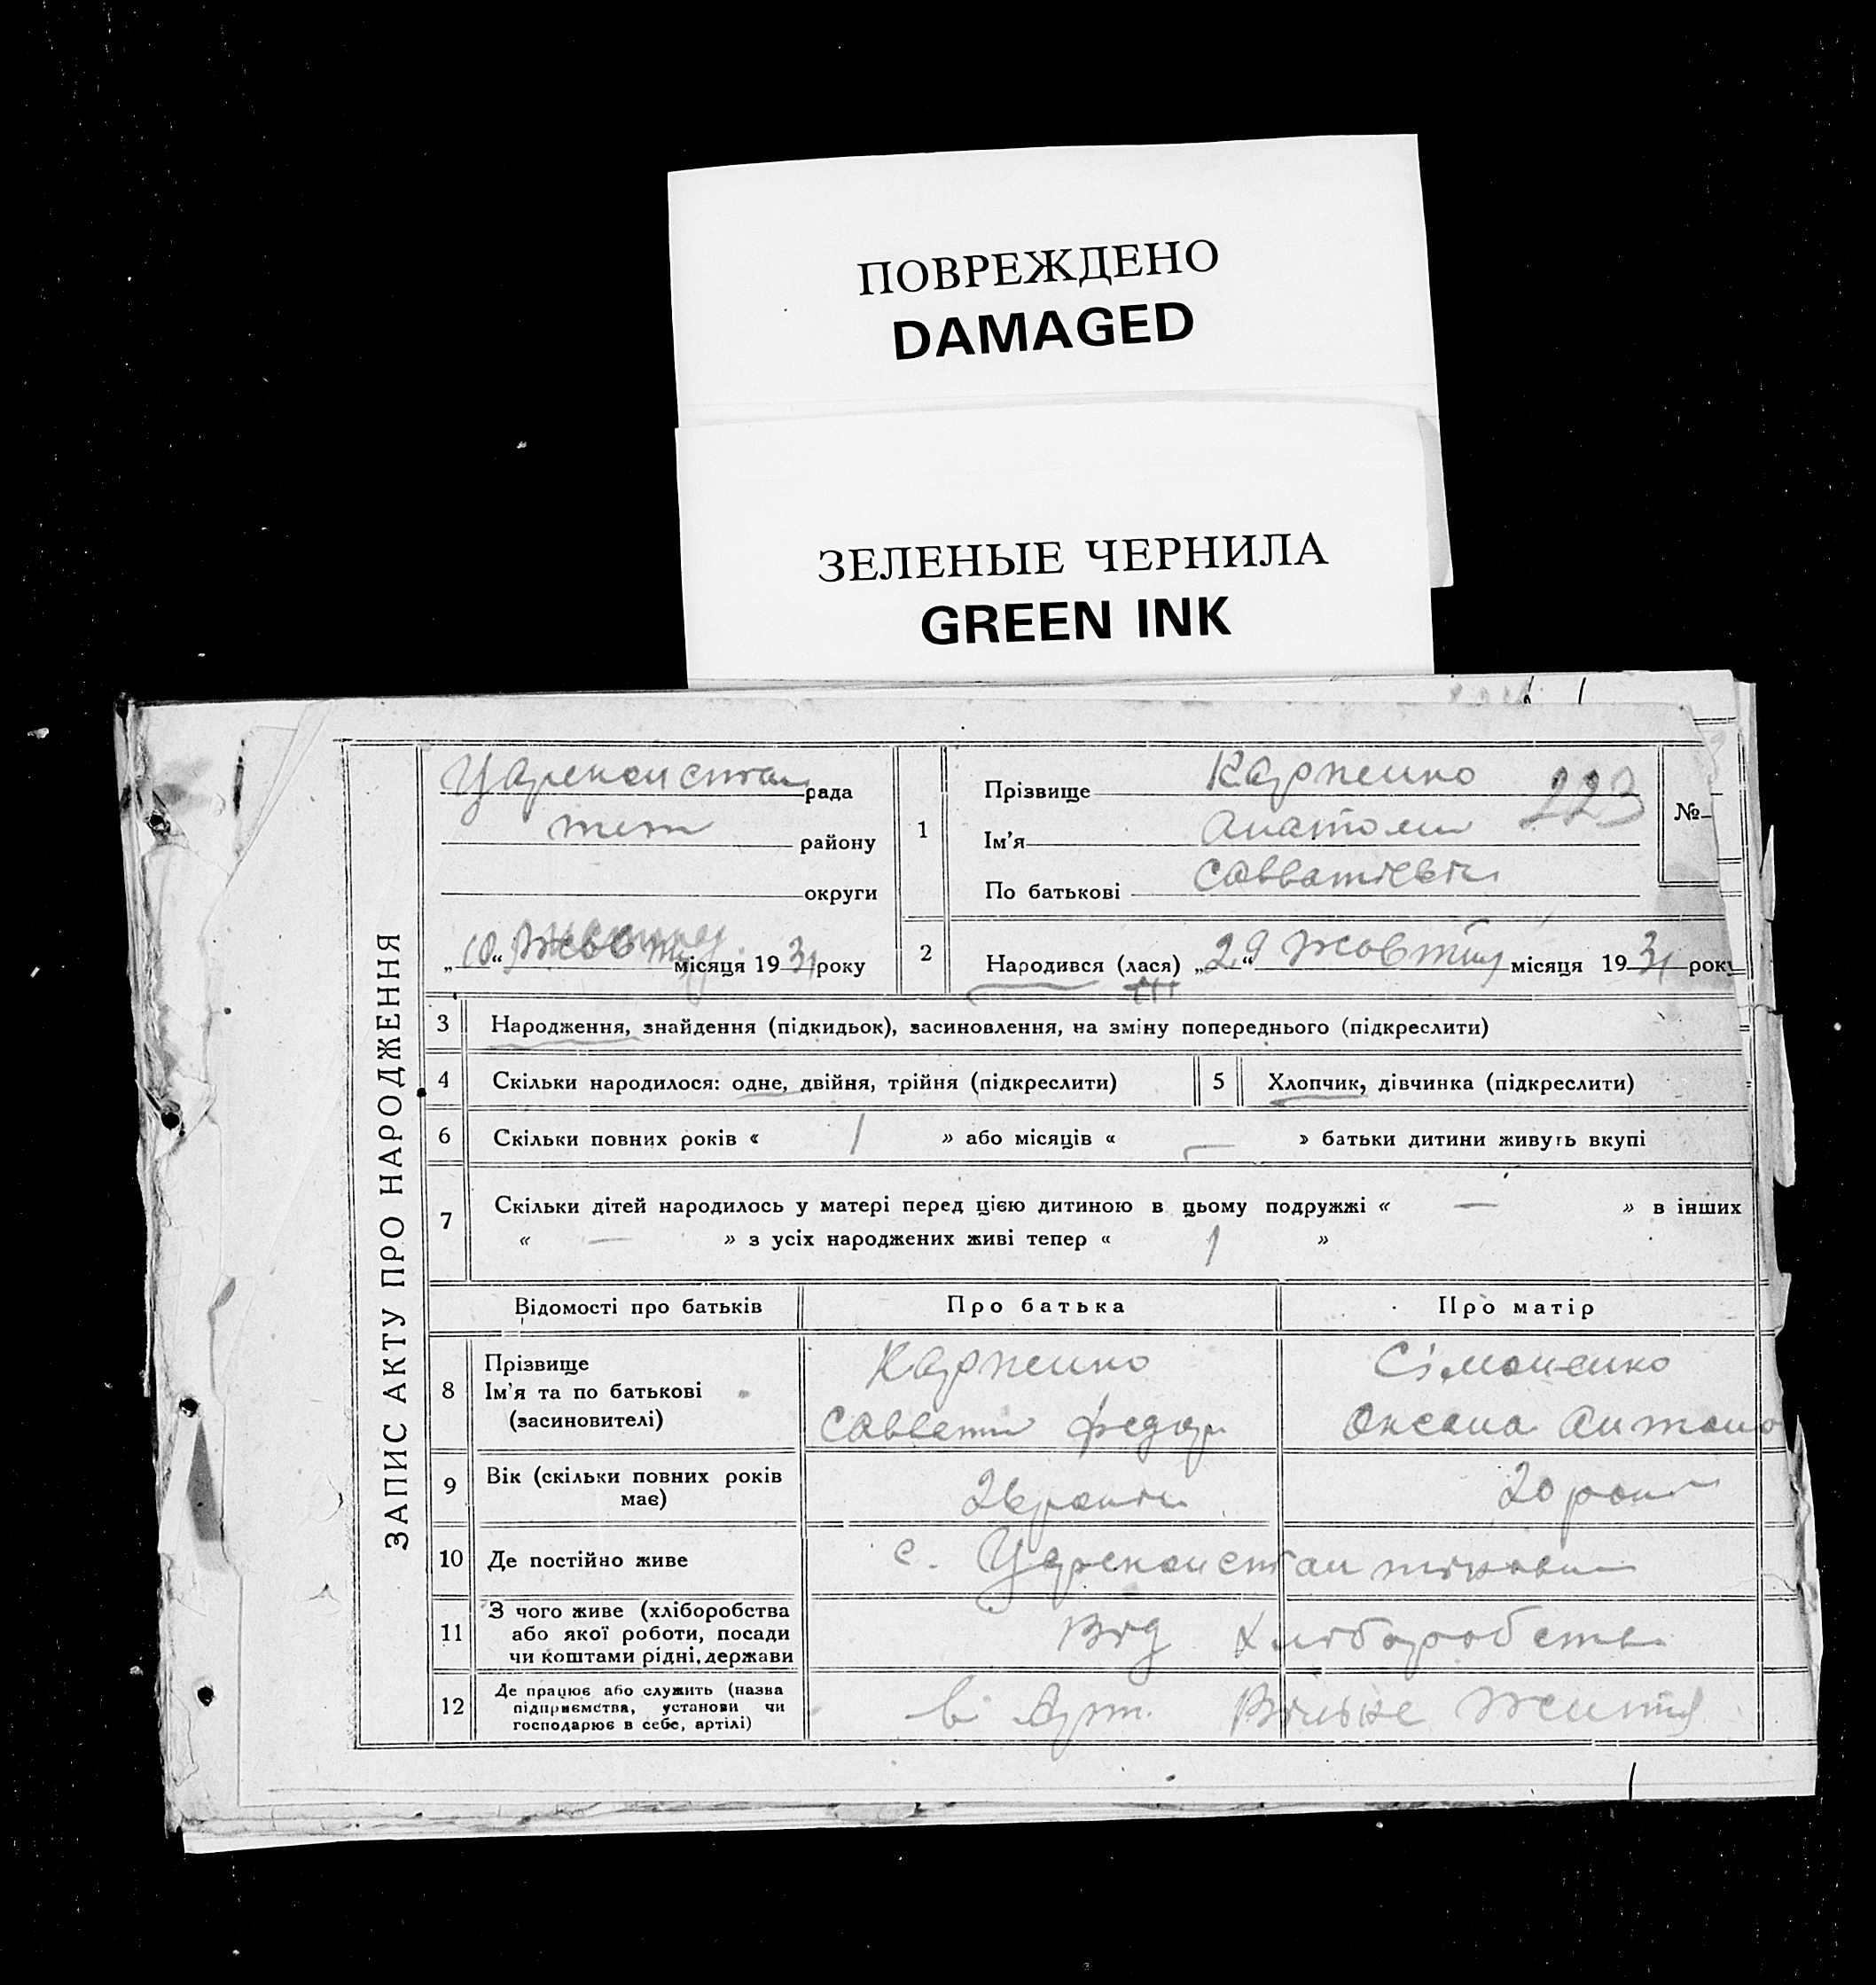 ПОВРЕЖДЕНО
DAMAGED
ЗЕЛЕНЫЕ ЧЕРНИЛА
GREEN INK
ЗАПИС АКТУ ПРО НАРОДЖЕННЯ
рада
району
округи
„10“ місяця 1931 року
1
Прізвище Карпенко
223
Ім'я Анатоли
По батькові
№
2
Народився (лася) „29“ Жовтня місяця 1931 року
3 Народження, знайдення (підкидьок), засиновлення, на зміну попереднього (підкреслити)
4 Скільки народилося: одне, двійня, трійня (підкреслити)
5 Хлопчик, дівчинка (підкреслити)
6 Скільки повних років « 1 » або місяців « — » батьки дитини живуть вкупі
7 Скільки дітей народилось у матері перед цією дитиною в цьому подружжі « — » в інших
« — » з усіх народжених живі тепер « 1 »
Відомості про батьків Про батька Про матір
8 Прізвище Карпенко Сімоненко
Ім'я та по батькові
(засиновителі) Савати Федор Оксана Антоно
9 Вік (скільки повних років
має) 26 роки 20 роки
10 Де постійно живе с. Цареконстантиновки
11 З чого живе (хліборобства
або якої роботи, посади
чи коштами рідні, держави Від хліборобства
12 Де працює або служить (назва
підприємства, установи чи
господарює в себе, артілі) в Арт. Вільне Життя